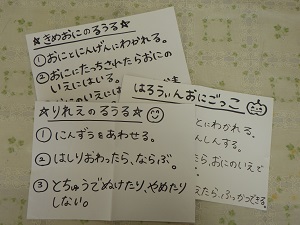 ☆きめおにのるうる☆
①おにとにんげんにわかれる。
②おににたっちされたらおにの
いえにはいる。
☆りれえのるうる☆
①にんずうをあわせる。
②はしりおわったら、ならぶ。
③とちゅうでぬけたり、やめたり
しない。
はろうぃんおにごっこ
とにわかれる。
んしんする。
たら、おにのいえで
えたら、ふっかつできる。